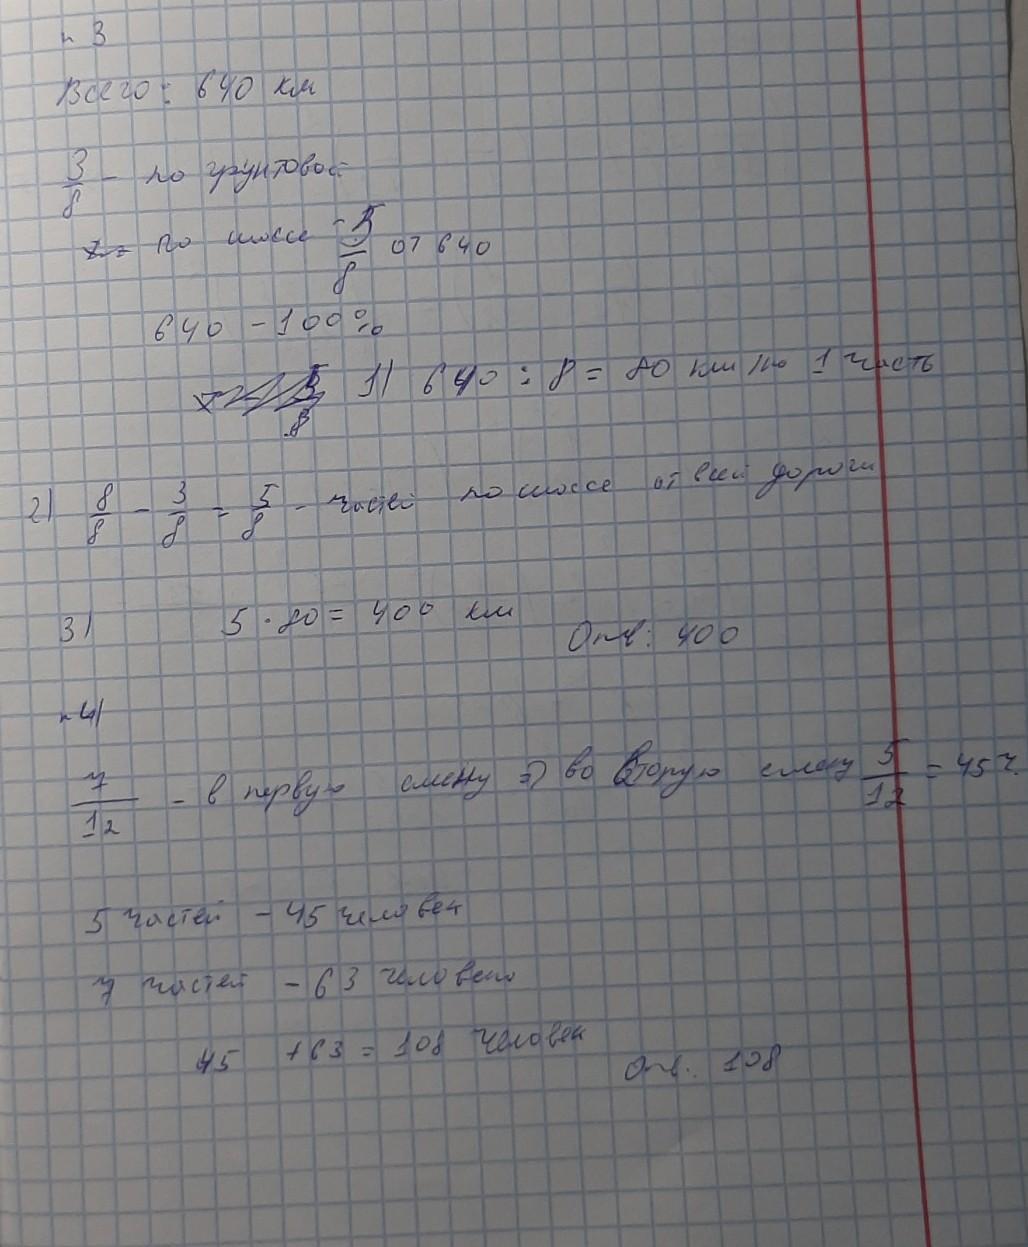 n 3
Всего: 640 км
3/8 - по грунтовой
по шоссе - 5/8 от 640
640 - 100%
1) 640 : 8 = 80 км по 1 часть
2) 8/8 - 3/8 = 5/8 - частей по шоссе от всей дороги
3) 5 · 80 = 400 км
Отв: 400
n 4
7/12 - в первую смену => во вторую смену 5/12 = 45 ч.
5 частей - 45 человек
7 частей - 63 человека
45 + 63 = 108 человек
Отв: 108